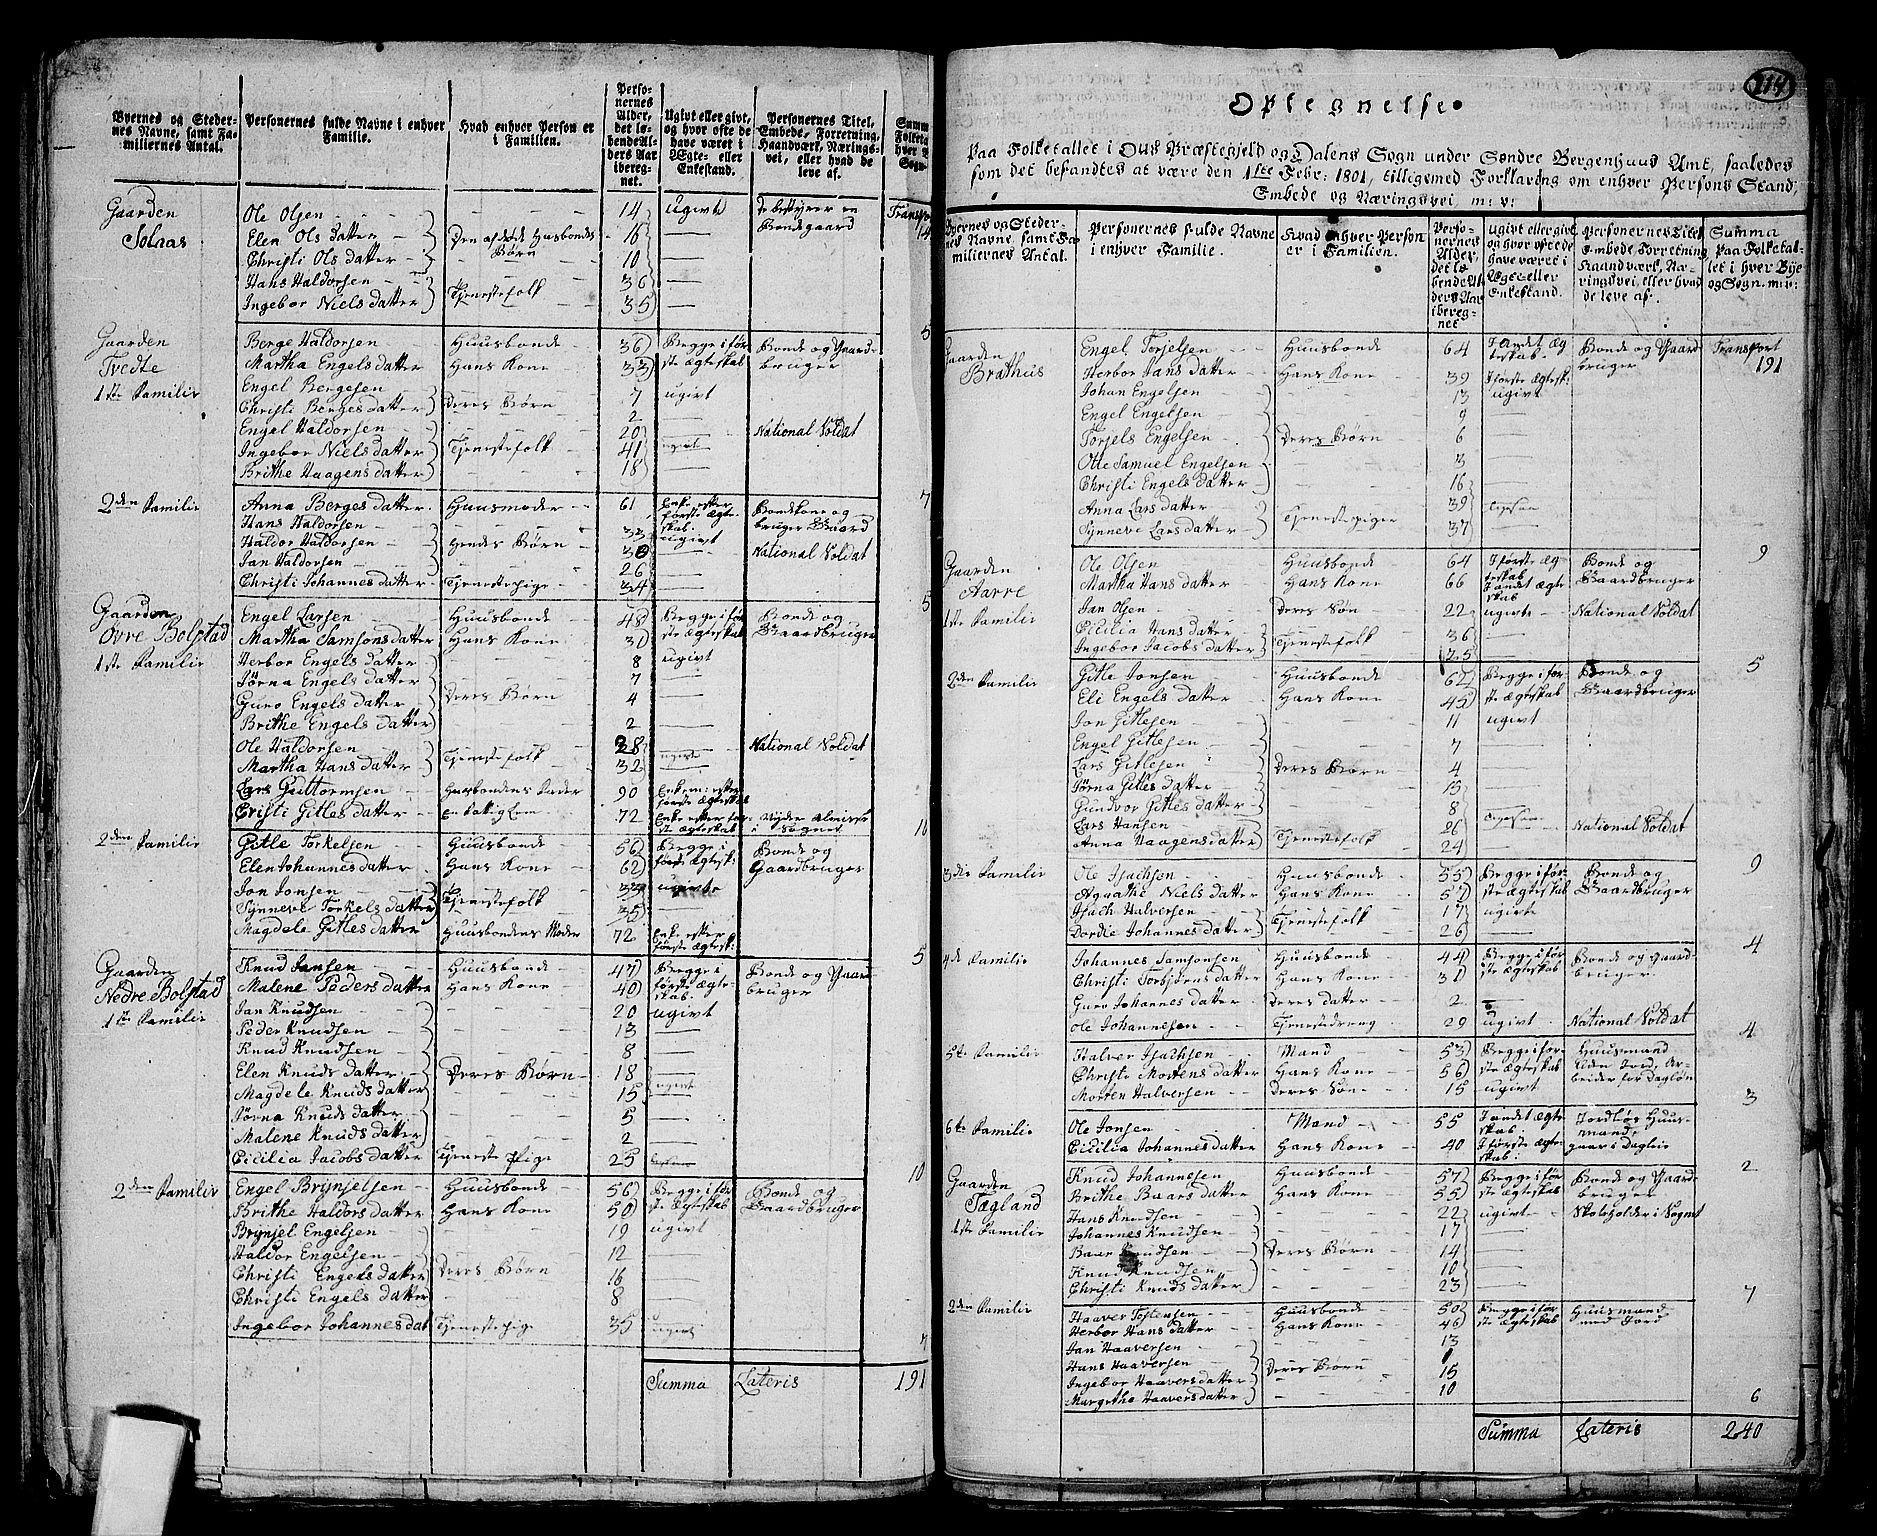 Byernes og Steder-
nes Navne, samt Fa-
miliernes Antal.
Personernes fulde Navne i enhver
Familie.
Hvad enhver Person er
i Familien.
Perso-
nernes
Alder,
det lø-
bende Al-
ders Aar
iberegnet.
Ugivt eller givt,
og hvor ofte de
have været i
Ægte- eller
Enkestand.
Personernes Titel,
Embede, Forretning,
Haandværk, Nærings-
vei, eller hvad de
leve af.
Gaarden Ole Olsen 14 Ugivte De bestyrer en Transpor
Solnas Elen Ols Datter Den afdøde Husbondes 16 Bondegaard
Christi Ols datter Børn 10
Hans Haldorsen 36
Ingebor Niels datter Tjenestefolk 35 5
Gaarden Berge Haldorsen Huusbonde 36 Begge i før- Bonde og Gaard-
Tvedte Martha Engels datter Hans Kone 33 ste Ægteskab bruger
1ste Familie Engel Bergesen 7 ugivt
Christi Berges datter Deres Børn 2
Engel Haldorsen 20 National Soldat
Ingebor Niels datter Tjenestefolk 41 ugivt
Brithe Haagens datter 18 7
2den Familie Anna Berges datter Huusmoder 61 Enke efter Bondekone og
Hans Haldorsen 33 første Ægte- bruger Gaard
Haldor Haldorsen Hendes Børn 30 skab. ugivt National Soldat
Jan Haldorsen 26
Christi Johannes datter Tjenestepige 34 5
Gaarden Engel Larsen Huusbonde 48 Begge i før- Bonde og
Øvre Bolstad Martha Samsons datter Hans Kone 31 ste Ægteskab Gaardbruger
1ste Familie Herbor Engels datter 8 ugivt
Jørna Engels datter 7
Guro Engels datter Deres Børn 4
Brithe Engels datter 2
Ole Haldorsen 28 National Soldat
Martha Hans datter Tjenestefolk 32 ugivt
Lars Guttormsen Husbondens Fader 90 Enkem: efter første Ægteskab
Cristi Gitles datter En fattig Lem 72 Enke efter før- Nyder Almisse
ste Ægteskab i Sognet 10
2den Familie Gitle Torkelsen Huusbonde 56 Begge i Bonde og
Elen Johannes datter Hans Kone 62 først Ægtesk: Gaardbruger
Jon Jonsen 33 ugivte
Synneve Torkels datter Tjenestefolk 35
Magdele Gitles datter Huusbondens Moder 72 Enke efter
første Ægtesk: 5
Gaarden Knud Jansen Huusbonde 47 Begge i Bonde og Gaard-
Nedre Bolstad Malene Peders datter Hans Kone 40 første Ægte- bruger
1ste Familie Jan Knudsen 20 skab. ugivt
Peder Knudsen 13
Knud Knudsen 8
Elen Knuds datter Deres Børn 18
Magdele Knuds datter 15 ugivt
Jørna Knuds datter 5
Malene Knuds datter 2
Cicilia Jacobs datter Tjeneste Pige 25 10
2den Familie Engel Brynjelsen Huusbonde 56 Begge i før- Bonde og
Brithe Haldors datter Hans Kone 50 ste Ægteskab Gaardbruger
Brynjel Engelsen 19 ugivt
Haldor Engelsen 12
Christi Engels datter Deres Børn 16
Christi Engels datter 8
Ingebor Johannes dat Tjenestepige 35 ugivt 7
Summa Lateris 191
114
Optegnelse.
Paa Folketallet i Ous Præstegjeld og Dalens Sogn under Søndre Bergenhuus Amt, saaledes
som det befandtes at være den 1ste Febr: 1801, tilligemed Forklaring om enhver Persons Stand,
Embede og Næringsvei, m:v:
Byernes og Steder-
nes Navne, samt Fa-
miliernes Antal.
Personernes fulde Navne
i enhver Familie.
Hvad enhver Person
er i Familien.
Perso-
nernes
Alder,
det lø-
bende Al-
ders Aar
iberegnet
Ugivt eller givt,
og hvor ofte de
have været i
Ægte eller
Enkestand.
Personernes Titel
Embede Forretning
Haandværk, Næ-
ringsvei, eller hvad
de leve af.
Summa
paa Folketal-
let i hver Bye
og Sogn. m:v:
Gaarden Engel Torjelsen Huusbonde 64 I andet Æg- Bonde og Gaard- Transport
Brathus Herbor Hans datter Hans Kone 39 I første Ægtesk: bruger 191
Johan Engelsen 13 ugivt
Engel Engelsen 9
Torjels Engelsen Deres Børn 6
Otte Samuel Engelsen 3
Christi Engels datter 16
Anna Lars datter 39
Synneve Lars datter Tjenestepiger 37 9
Gaarden Ole Olsen Huusbonde 64 I første Æg- Bonde og
Aarre Martha Hans datter Hans Kone 66 teskab I andet Ægteskab Gaardbruger
1ste Familie Jan Olsen Deres Søn 22 ugivte National Soldat
Cicilia Hans datter 36
Ingebor Jacobs datter Tjenestefolk 25 5
2den Familie Gitle Jonsen Huusbonde 62 Begge i før- Bonde og
Eli Engels datter Hans Kone 45 ste Ægteskab Gaardbruger
Jon Gitlesen 11 ugivt
Engel Gitlesen 7
Lars Gitlesen Deres Børn 4
Jørna Gitles datter 15
Gundvor Gitles datter 8
Lars Hansen 26 National Soldat
Anna Haagens datter Tjenestefolk 24 9
3die Familie Ole Isachsen Huusbonde 55 Begge i før- Bonde og
Agaathe Niels datter Hans Kone 57 ste Ægteskab Gaardbruger
Isach Halversen 17 ugivte
Dordie Johannes datter Tjenestefolk 26 4
4de Familie Johannes Samsonsen Huusbonde 44 Begge i før- Bonde og Gaard-
Christi Torbjørns datter Hans Kone 31 ste Ægteskab bruger
Guro Johannes datter Deres Datter 2
Ole Johannesen Tjenestedreng 29 ugivt National Soldat 4
5te Familie Halver Isachsen Mand 53 Begge i før- Huusmand
Christi Mortens datter Hans Kone 56 ste Ægteskab Uden Jord, Ar-
Morten Halversen Deres Søn 15 ugivt beider for Dagløn 3
6te Familie Ole Jonsen Mand 55 I andet Ægte- Jordløs Huus-
skab: mand,
Cicilia Johannes datter Hans Kone 40 I første Ægte- gaar i Dagleie
skab: 2
Gaarden Knud Johannesen Huusbonde 57 Begge i før- Bonde og Gaard-
Tægland Brithe Baars datter Hans Kone 55 ste Ægteskab bruger
1ste Familie Hans Knudsen 22 ugivt Skoleholder i Sognet
Johannes Knudsen 17
Baar Knudsen Deres Børn 14
Knud Knudsen 10
Christi Knuds datter 23 7
2den Familie Haaver Tostensen Huusbonde 50 Begge i før- Huusmand
Herbor Hans datter Hans Kone 46 ste Ægteskab med Jord
Jan Haaversen 13
Hans Haaversen Deres Børn
Ingebor Haavers datter 15
Margrethe Haavers datter 10 6
Summa Lateris 240